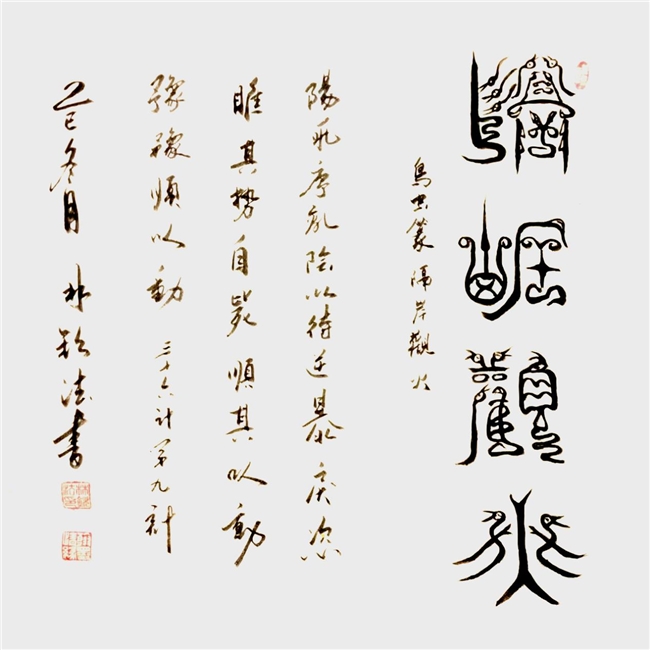 隔岸觀火
鳥虫篆 隔岸觀火
陽乖序亂陰以待逆暴戾恣
睢其勢自斃順其以動
豫豫順以動 三十六計第九計
乙巳冬月 林 法書